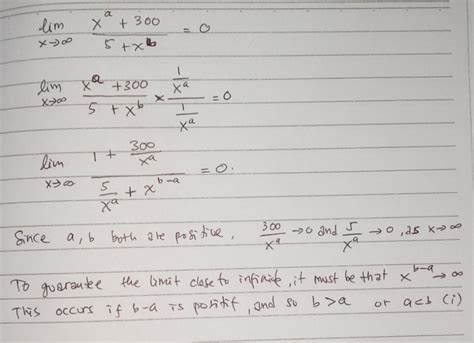 lim x→∞ (x^a + 300)/(5 + x^b) = 0
lim x→∞ (x^a + 300)/(5 + x^b) × (1/x^a)/(1/x^a) = 0
lim x→∞ (1 + 300/x^a)/(5/x^a + x^(b-a)) = 0.
Since a, b both are positive, 300/x^a → 0 and 5/x^a → 0, as x → ∞
To guarantee the limit close to infinite, it must be that x^(b-a) → ∞
This occurs if b-a is positif, and so b > a or a < b (i)